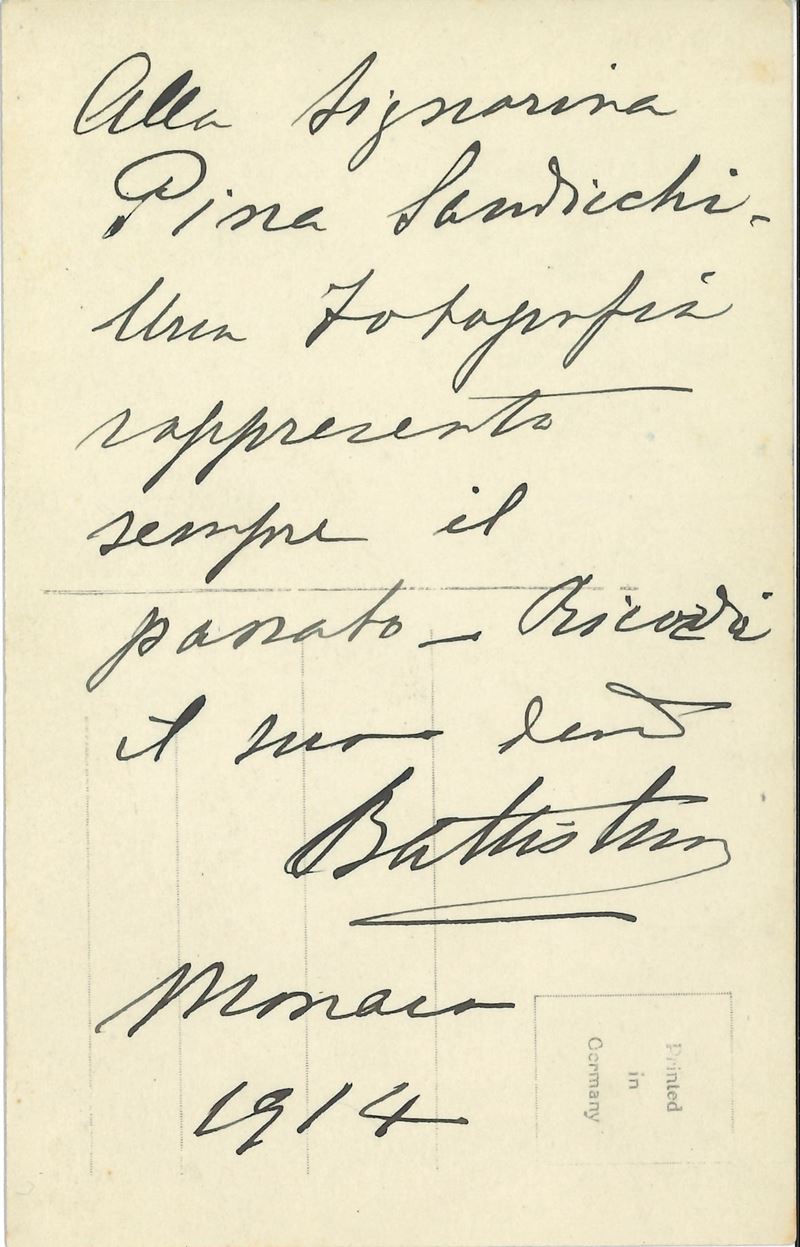 Alla Signorina
Pina Sandicchi.
Una Fotografia
rappresenta
sempre il
passato — Ricordi
il suo
Battistini
Monaco
1914
Printed
in
Germany